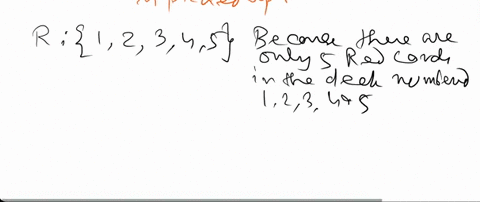 R : { 1, 2, 3, 4, 5 } Because there are
only 5 Red Cards
in the deck numbered
1, 2, 3, 4 & 5